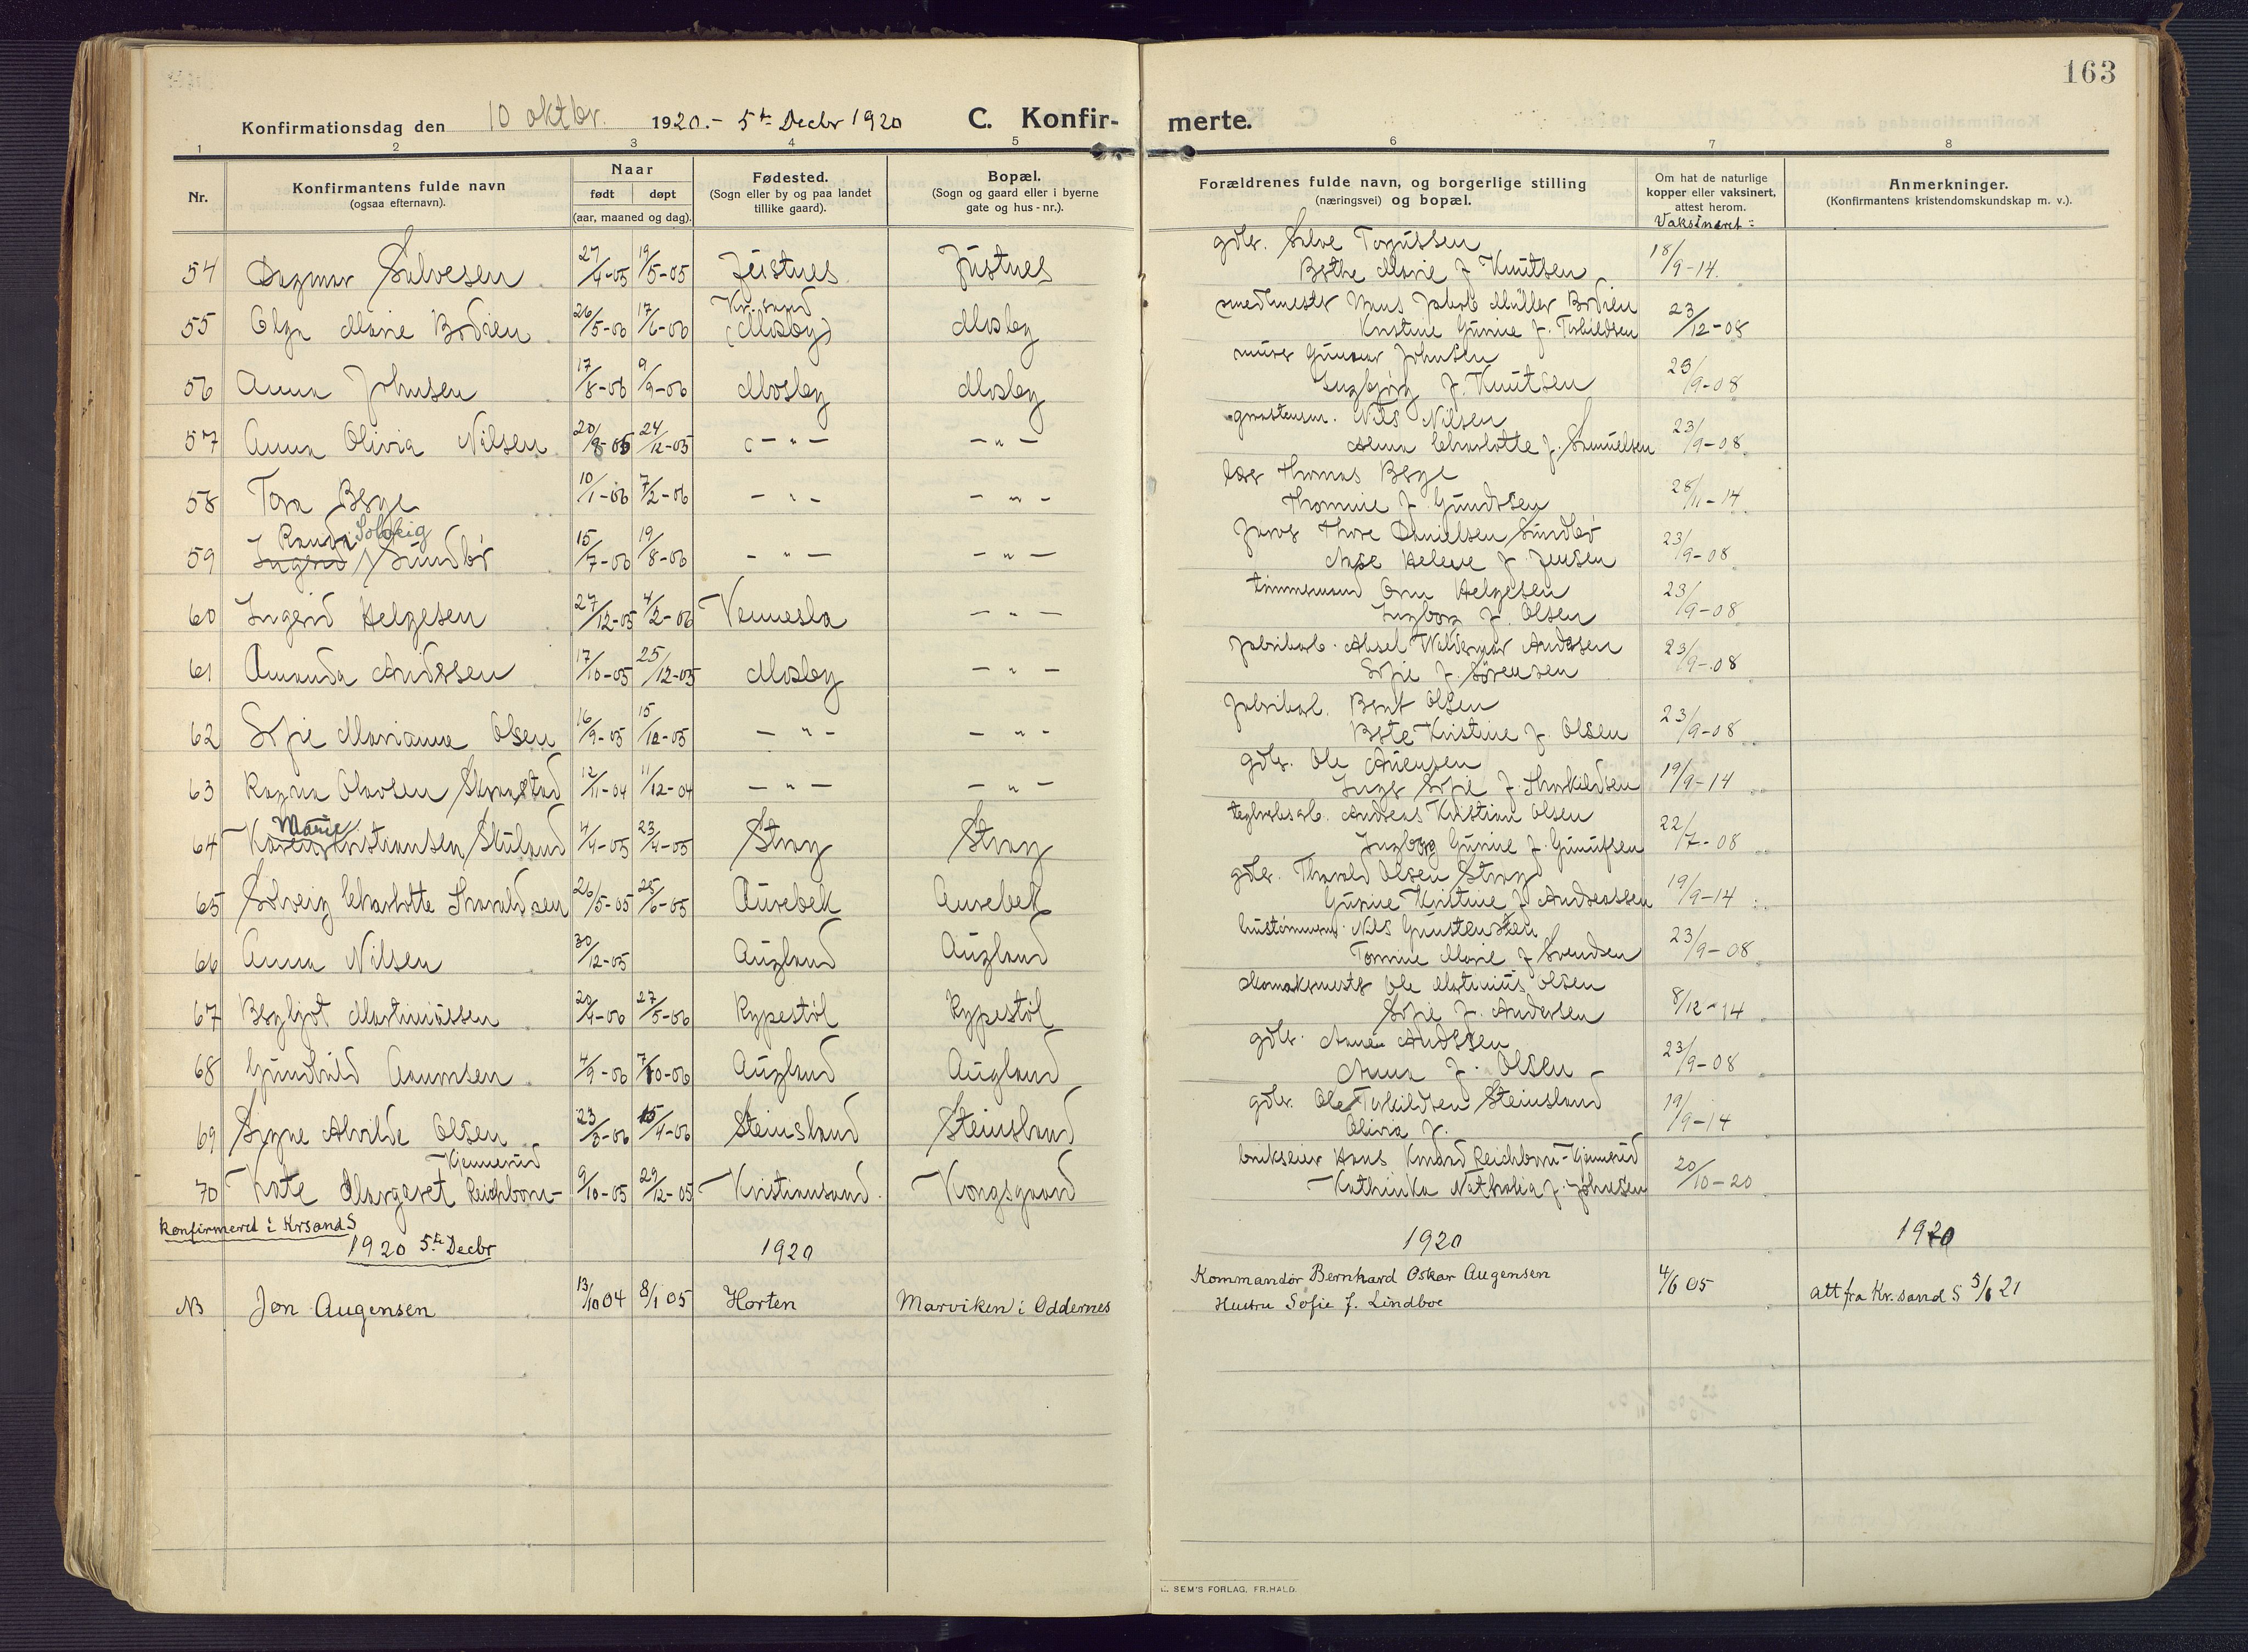 163
Konfirmationsdag den 10 oktbr. 1920. - 5te Decbr 1920 C. Konfir- merte.
1 2 3 4 5 6 7 8
Nr.
Konfirmantens fulde navn
(ogsaa efternavn).
Naar
født døpt
(aar, maaned og dag).
Fødested.
(Sogn eller by og paa landet
tillike gaard).
Bopæl.
(Sogn og gaard eller i byerne
gate og hus-nr.).
Forældrenes fulde navn, og borgerlige stilling
(næringsvei) og bopæl.
Om hat de naturlige
kopper eller vaksinert,
attest herom.
Vaksineret:
Anmerkninger.
(Konfirmantens kristendomskundskap m. v.).
gdbr. Salve Torjussen
54 Dagmar Salvesen 27/4-05 19/5-05 Justnes Justnes 18/9-14.
Berthe Marie f. Knutsen
Kr.sand
smedmester Hans Jakob Müller Brdien
55 Olga Marie Brdien 26/5-06 17/6-06 (Mosby) Mosby 23/12-08
Kristine Gurine f. Terkildsen
murer Gunnar Johnsen
56 Anna Johnsen 17/8-06 9/9-06 Mosby Mosby 23/9-08
Ingbjørg f. Knutsen
Nils Nilsen
57 Anna Olivia Nilsen 20/8-05 24/12-05 - " - - " - 23/9-08
Anna Charlotte f. Samuelsen
Thomas Berge
58 Tora Berge 10/1-06 7/2-06 - " - - " - 28/11-14
Thomine f. Gundersen
Randi Solveig
Thore Danielsen Sundbø
59 Ingrid Sundbø 15/7-06 19/8-06 - " - - " - 23/9-08
Aase Helene f. Jensen
tømmermand Orm Helgesen
60 Ingrid Helgesen 27/12-05 4/2-06 Vennesla - " - 23/9-08
Ingborg f. Olsen
fabrikarb. Aksel Waldemar Andersen
61 Amanda Andersen 17/10-05 25/12-05 Mosby - " - 23/9-08
Sofie f. Sørensen
fabrikarb. Bernt Olsen
62 Sofie Marianne Olsen 16/9-05 15/12-05 - " - - " - 23/9-08
Berte Kristine f. Olsen
gdbr. Ole Auensen
63 Ragna Olavsen Skraastad 12/11-04 11/12-04 - " - - " - 19/9-14
Inger Sofie f. Thorkildsen
Marie
teglverksarb. Andreas Kristian Olsen
64 Karen Kristiansen Skuland 4/4-05 23/4-05 Stray Stray 22/7-08
Ingborg Gurine f. Gunufsen
gdbr. Tharald Olsen Stray
65 Solveig Charlotte Tharaldsen 26/5-05 25/6-05 Aurebek Aurebek 19/9-14
Gurine Kristine f. Andreassen
hustømmerm. Nils Gunstensen
66 Anna Nilsen 30/12-05 Augland Augland 23/9-08
Tomine Marie f. Svendsen
skomakermester Ole Martinius Olsen
67 Bergljot Martiniussen 29/4-06 27/5-06 Rypestøl Rypestøl 8/12-14
Sofie f. Andersen
gdbr. Anen Anderssen
68 Gundhild Aanunsen 4/9-06 7/10-06 Augland Augland 23/9-08
Anna f. Olsen
gdbr. Ole Terkildsen Steinsland
69 Signe Alvilde Olsen 23/3-06 15/4-06 Steinsland Steinsland 19/9-14
Olivia f.
Kjennerud
brukseier Hans Konrad Reichborn-Kjennerud
70 Kate Margaret Reichborn- 9/10-05 29/12-05 Kristiansand. Kongsgaard 20/10-20
Kathinka Nathalia f. Johnsen
Konfirmeret i Krsand S
1920 5te Decbr 1920 1920 1920
Kommandør Bernhard Oskar Augensen
NB Jon Augensen 13/10 04 8/1 05 Horten Marviken i Oddernes 4/6 05 att fra Kr.sand S 5/6 21
Hustru Sofie f. Lindboe
E. SEM'S FORLAG, FR.HALD.